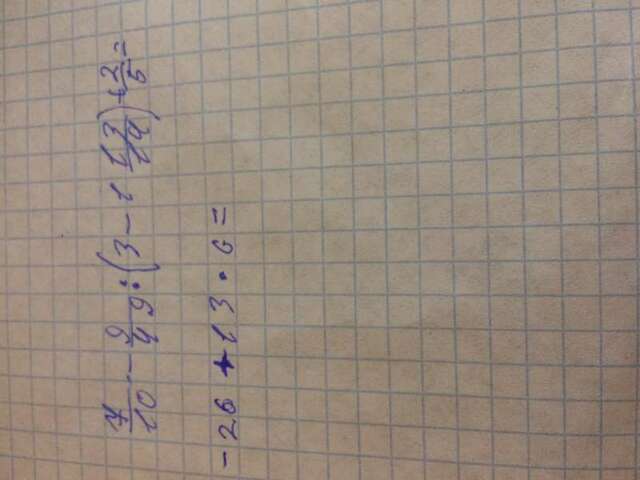 7/10 - 9/49 : (3 - 1 13/14) + 2/5 =
- 26 + 13 · 6 =